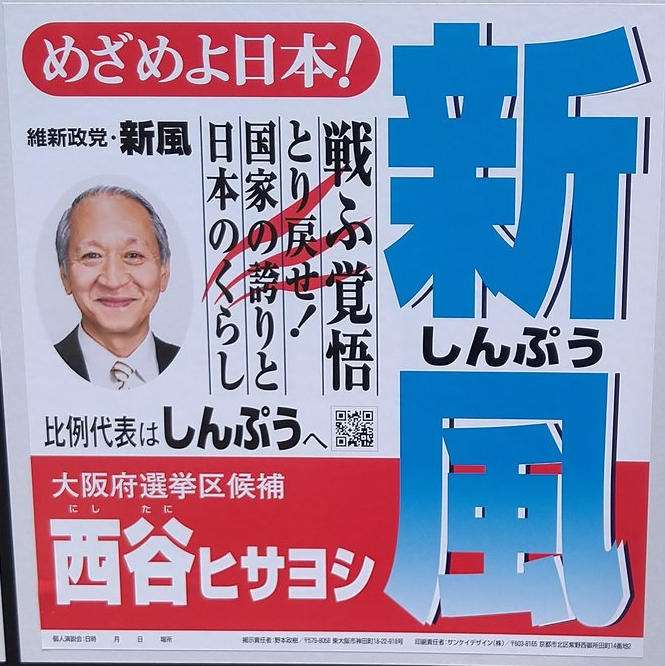 めざめよ日本！
新風
しんぷう
維新政党・新風
戦ふ覚悟
とり戻せ！
国家の誇りと
日本のくらし
比例代表はしんぷうへ
大阪府選挙区候補
にし たに
西谷ヒサヨシ
個人演説会：日時 月 日 場所
掲示責任者：野本政樹／〒579-8058 東大阪市神田町18-22-918号
印刷責任者：サンケイデザイン（株）／〒603-8165 京都市北区紫野西御所田町14番地2